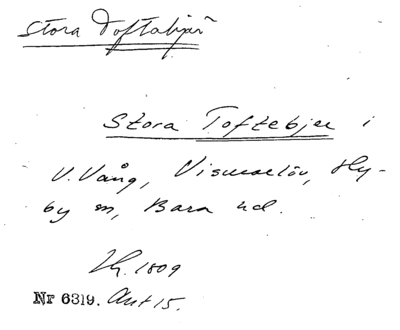 Stora Toftabjär
Stora Toftebjer i
V. Vång, Vismarlöv, Hy-
by sn, Bara hd.
1809
Nr 6319. Akt 15.